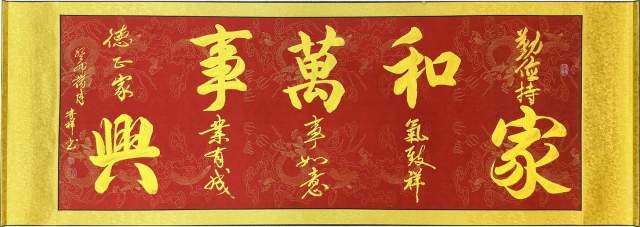 勤俭持家
和氣致祥
萬事如意
事業有成
德正家興